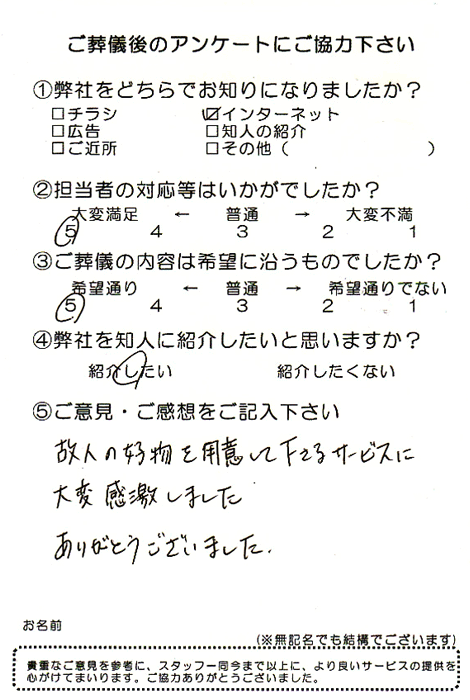 ご葬儀後のアンケートにご協力下さい
①弊社をどちらでお知りになりましたか？
□チラシ ☑インターネット
□広告 □知人の紹介
□ご近所 □その他（ ）
②担当者の対応等はいかがでしたか？
大変満足 ← 普通 → 大変不満
5 4 3 2 1
③ご葬儀の内容は希望に沿うものでしたか？
希望通り ← 普通 → 希望通りでない
5 4 3 2 1
④弊社を知人に紹介したいと思いますか？
紹介したい 紹介したくない
⑤ご意見・ご感想をご記入下さい
故人の好物を用意して下さるサービスに
大変感激しました
ありがとうございました.
お名前
(※無記名でも結構でございます)
貴重なご意見を参考に、スタッフ一同今まで以上に、より良いサービスの提供を
心がけてまいります。ご協力ありがとうございました。